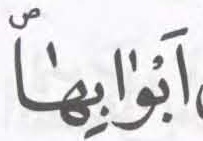 اَبْوٰابِهٰا ص